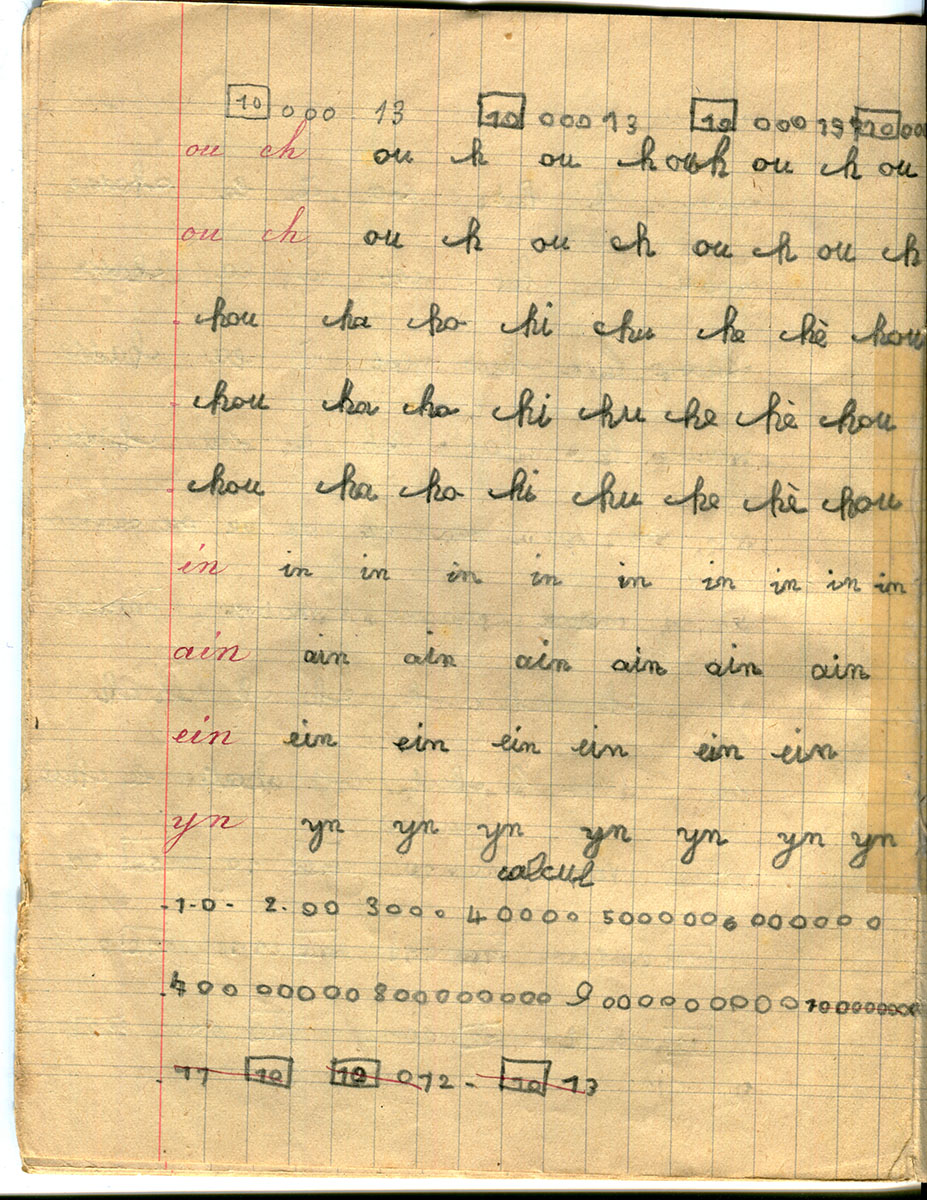 10 000 13 10 000 13 10 000 13 10 000
ou ch ou ch ou ch ou ch ou ch ou
ou ch ou ch ou ch ou ch ou ch
chou cha cho chi chu che chè chou
chou cha cho chi chu che chè chou
chou cha cho chi chu che chè chou
in in in in in in in in in in
ain ain ain ain ain ain ain
ein ein ein ein ein ein ein
yn yn yn yn yn yn yn yn
calcul
-1-0- 2-00 3000 40000 500000 6000000
700 00000 800000000 9 000000000 10000000
11 10 10 012- 10 13